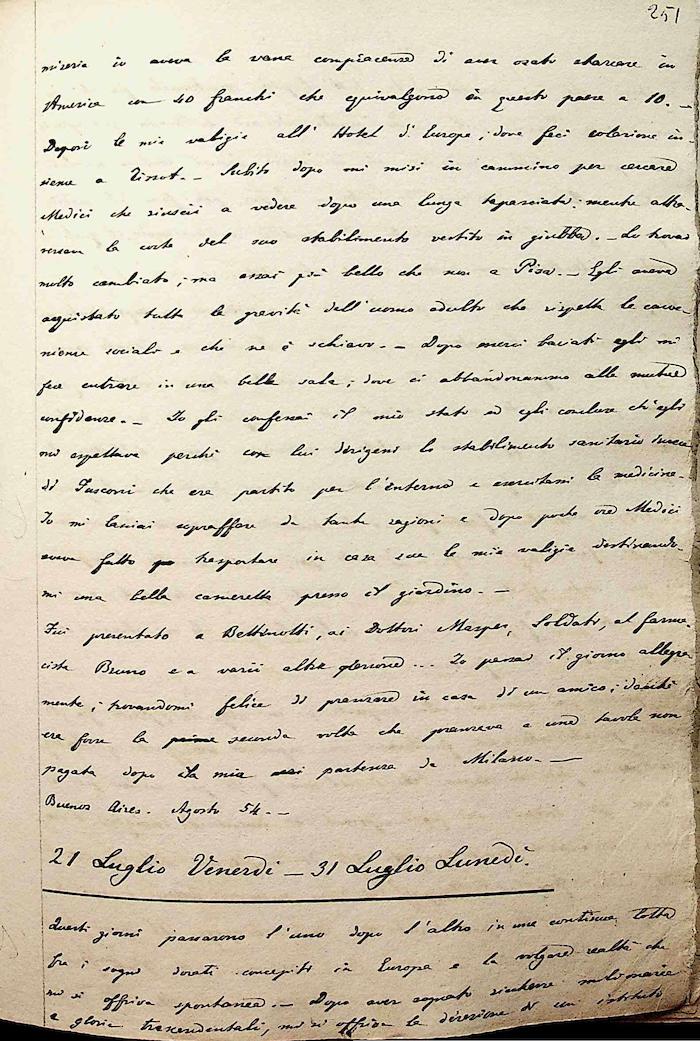 251
miseria io aveva la vana compiacenza di aver osato sbarcare in
America con 40 franchi che equivalgono in questo paese a 10. —
Deposi le mie valigie all' Hotel d' Europe, dove feci colazione in-
sieme a Tissot. — Subito dopo mi misi in cammino per cercare
Medici che riuscii a vedere dopo una lunga tapasciata mentre attra-
versava la corte del suo stabilimento vestito in giubba. — Lo trovai
molto cambiato, ma assai più bello che non a Pisa. — Egli aveva
acquistato tutta la gravità dell'uomo adulto che rispetta le conve-
nienze sociali e che ne è schiavo. — Dopo esserci baciati egli mi
fece entrare in una bella sala, dove ci abbandonammo alle mutue
confidenze. — Io gli confessai il mio stato ed egli concluse ch'egli
mi aspettava perchè con lui dirigessi lo stabilimento sanitario invece
di Fusconi che era partito per l'interno e esercitassi la medicina. —
Io mi lasciai sopraffare da tante ragioni e dopo poche ore Medici
aveva fatto trasportare in casa sua le mie valigie destinando-
mi una bella cameretta presso il giardino. —
Fui presentato a Bettinotti, ai Dottori Soldati, al farma-
cista Bruno e a varii altre persone... Io passai il giorno allegra-
mente, trovandomi felice di pranzare in casa di un amico; daché
era forse la prima seconda volta che pranzava a una tavola non
pagata dopo la mia partenza da Milano. —
Buenos Aires. Agosto 54. —
21 Luglio Venerdì — 31 Luglio Lunedì.
Questi giorni passarono l'uno dopo l'altro in una continua lotta
fra i sogni dorati concepiti in Europa e la volgare realtà che
mi si offriva spontanea. — Dopo aver sognato ricchezze milionarie
e glorie trascendentali, mi si offriva la direzione di un istituto